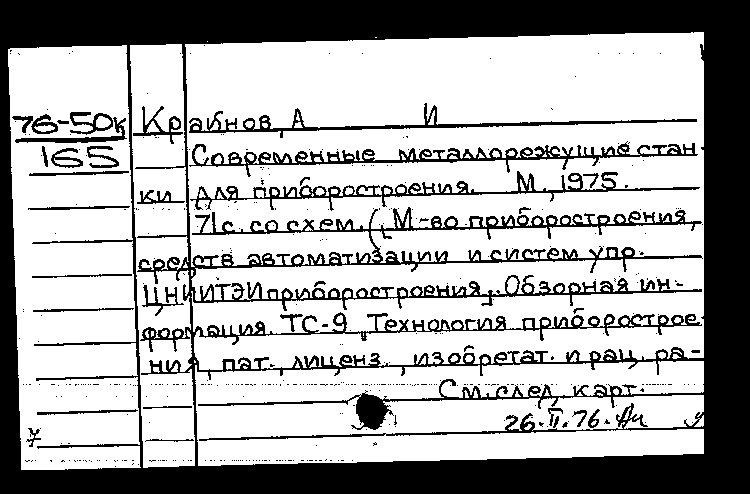 76-50к Крайнов, А И
165 Современные металлорежущие стан-
ки для приборостроения. М., 1975.
71с. со схем. (М-во приборостроения,
средств автоматизации и систем упр.
ЦНИИТЭИприборостроения. Обзорная ин-
формация. ТС-9. Технология приборострое-
ния, пат., лиценз., изобретат. и рац. ра-
См. след. карт.
26.II.76.